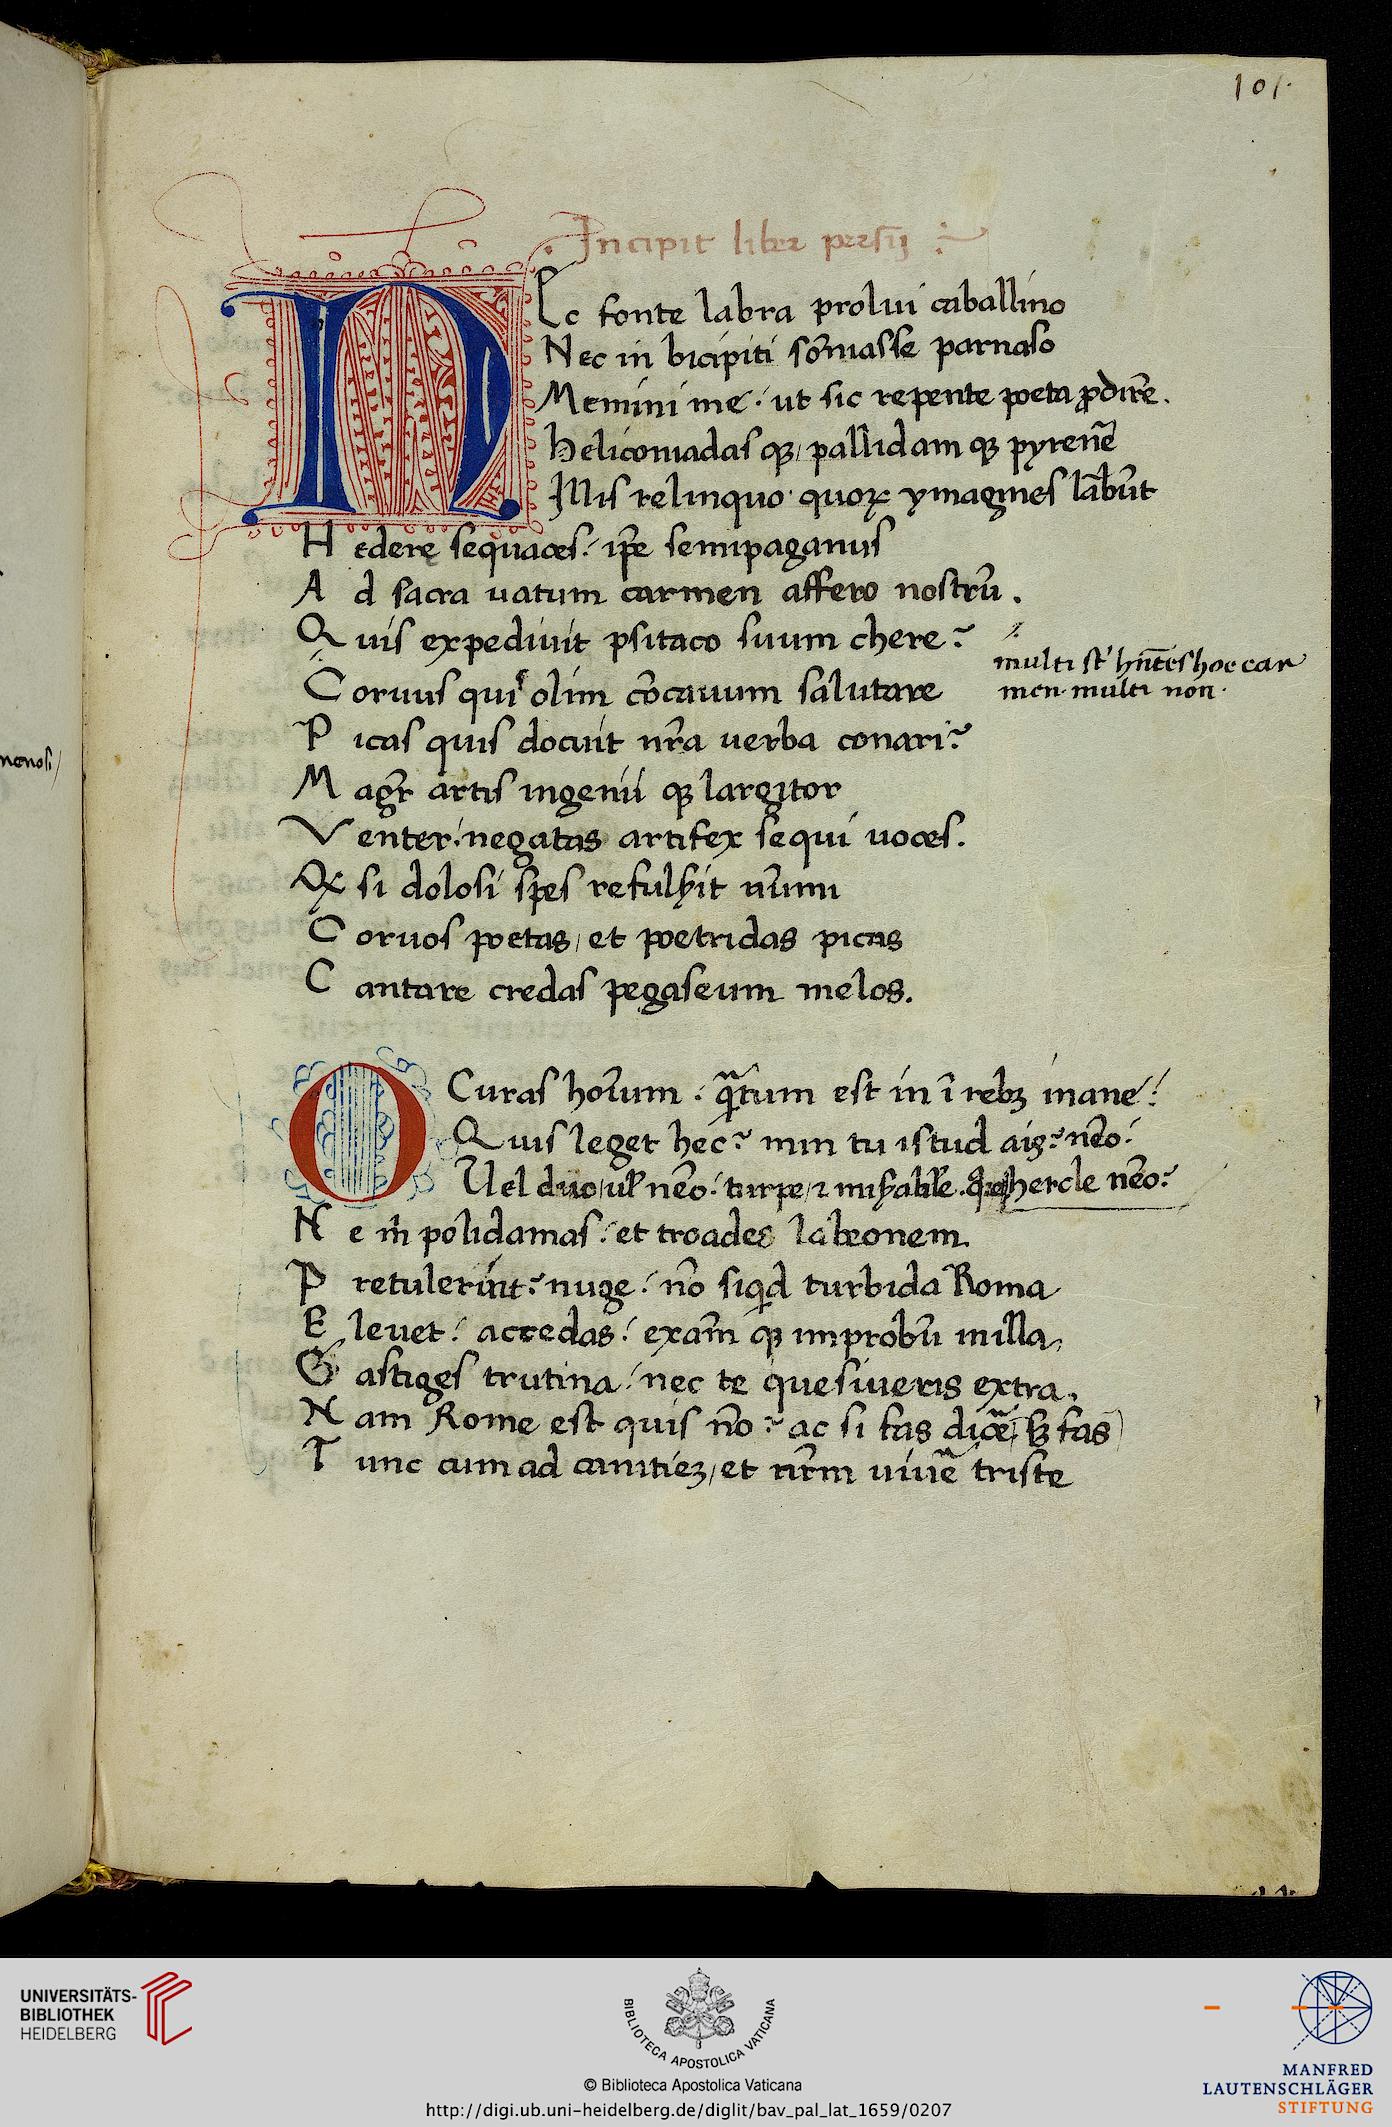 101.
Incipit liber persij
NEc fonte labra prolui caballino
Nec in bicipiti sõniasse parnaso
Memini me: ut sic repente poeta ꝓdirẽ.
heliconiadasqꝫ pallidamqꝫ pyrenẽ
Illis relinquo quoꝝ ymagines lãbũt
Hederę sequaces: ip̃e semipaganus
Ad sacra uatum carmen affero nostrũ.
Quis expediuit psitaco suum chere?
multi st̃ hñtes hoc car
Coruus quis olim cõcauum salutare
men multi non.
Picas quis docuit nr̃a uerba conari?
Magr̃ artis ingeniiqꝫ largitor
Venter: negatas artifex sequi uoces.
Qꝫ si dolosi spes refulsit nũmi
Coruos poetas, et poetridas picas
Cantare credas pegaseum melos.
O Curas hoĩum: qũtum est in ĩ rebꝫ inane!
Quis leget hec? min tu istud ais? nẽo:
Vel duo, ul̃ nẽo: turpe, ⁊ miẜabile. hercle nẽo?
Ne m̃ polidamas: et troades labeonem
Pretulerint? nuge: nõ siqd turbida Roma
Eleuet: accedas: exam̃qꝫ improbũ in illa,
Castiges trutina: nec te quesiueris extra.
Nam Rome est quis nõ? ac si fas dicẽ, sꝫ fas
Tunc cum ad canitiem, et nr̃m uiuẽ triste
UNIVERSITÄTS-
BIBLIOTHEK
HEIDELBERG
BIBLIOTECA APOSTOLICA VATICANA
© Biblioteca Apostolica Vaticana
http://digi.ub.uni-heidelberg.de/diglit/bav_pal_lat_1659/0207
MANFRED
LAUTENSCHLÄGER
STIFTUNG